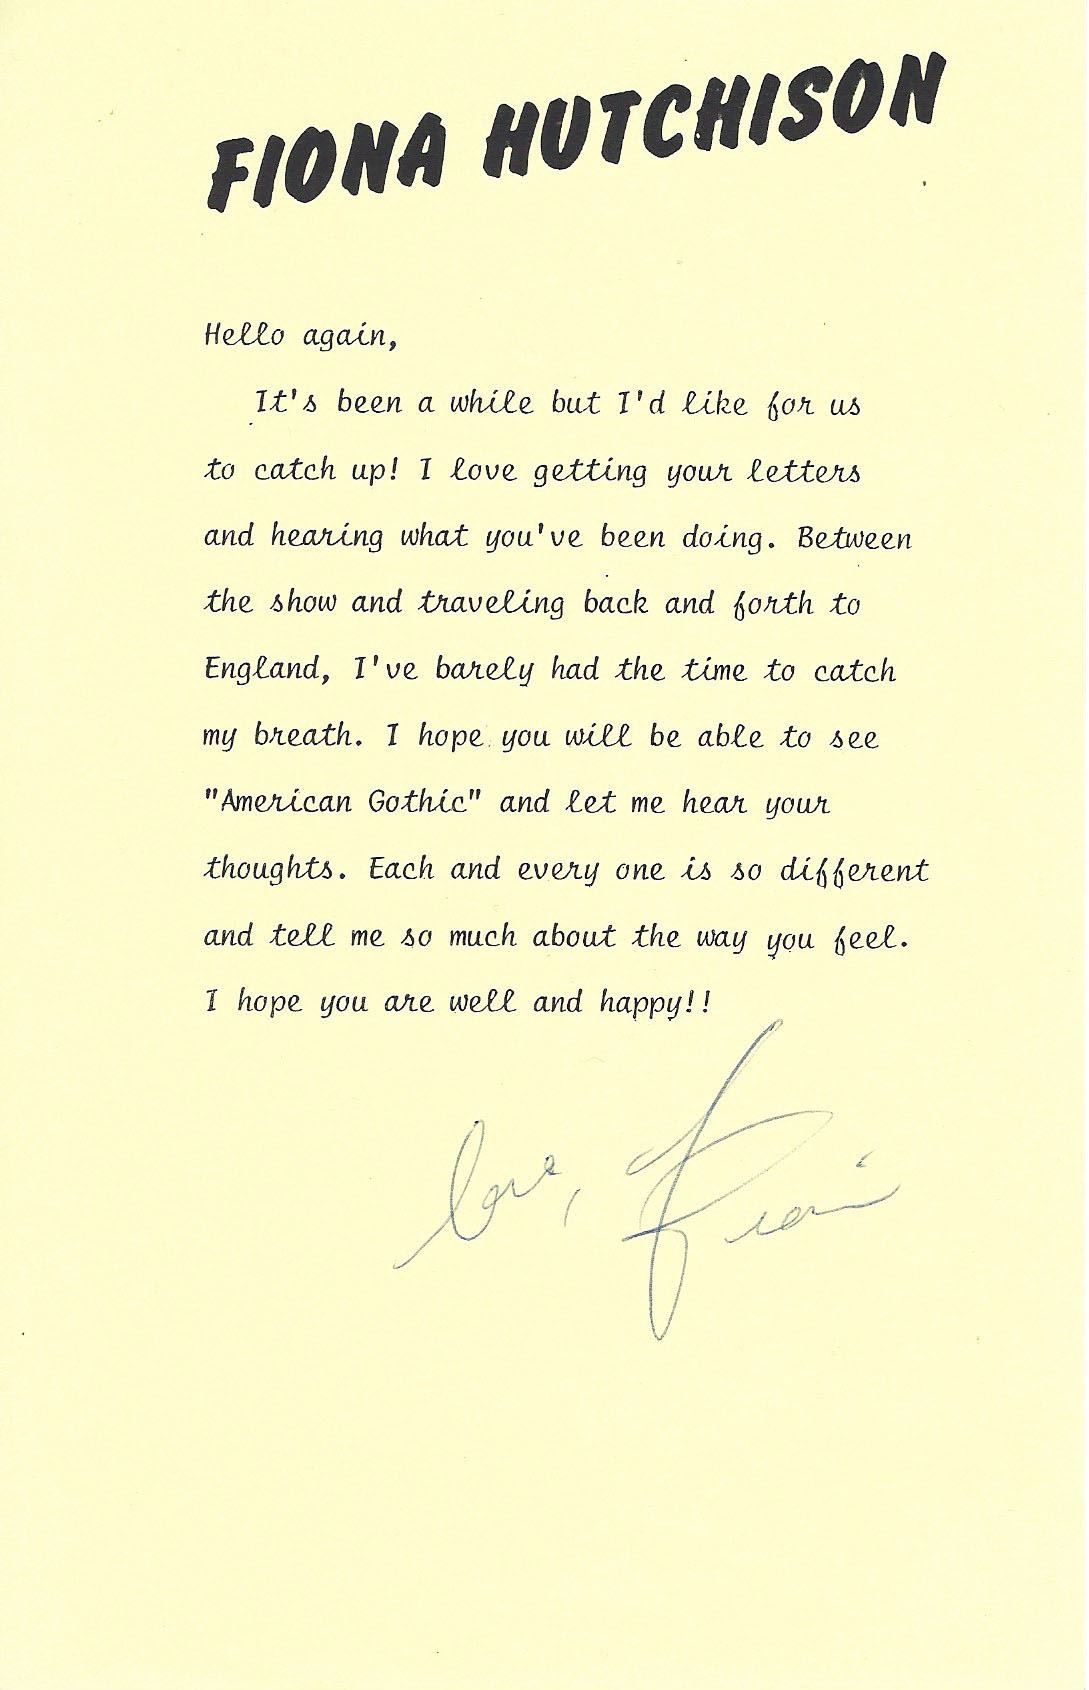 FIONA HUTCHISON
Hello again,
It's been a while but I'd like for us
to catch up! I love getting your letters
and hearing what you've been doing. Between
the show and traveling back and forth to
England, I've barely had the time to catch
my breath. I hope you will be able to see
"American Gothic" and let me hear your
thoughts. Each and every one is so different
and tell me so much about the way you feel.
I hope you are well and happy!!
love, Fiona